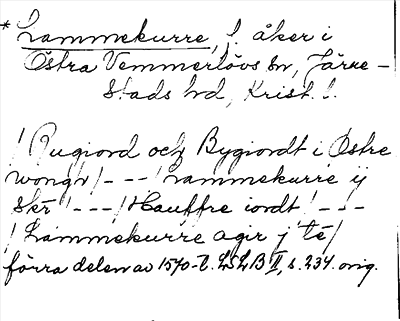 * Lammekurre, l. åker i
Östra Vemmerlövs sn, Järre-
stads hd, Krist. l.
/ Rugiord och Bygiordt i Östre
wongr / - - - / Lammekurre ij
Skr / - - - / Hauffre iordt / - - -
/ Lammekurre agir j te /
förra delen av 1570-t. LSLB II, s. 234. orig.